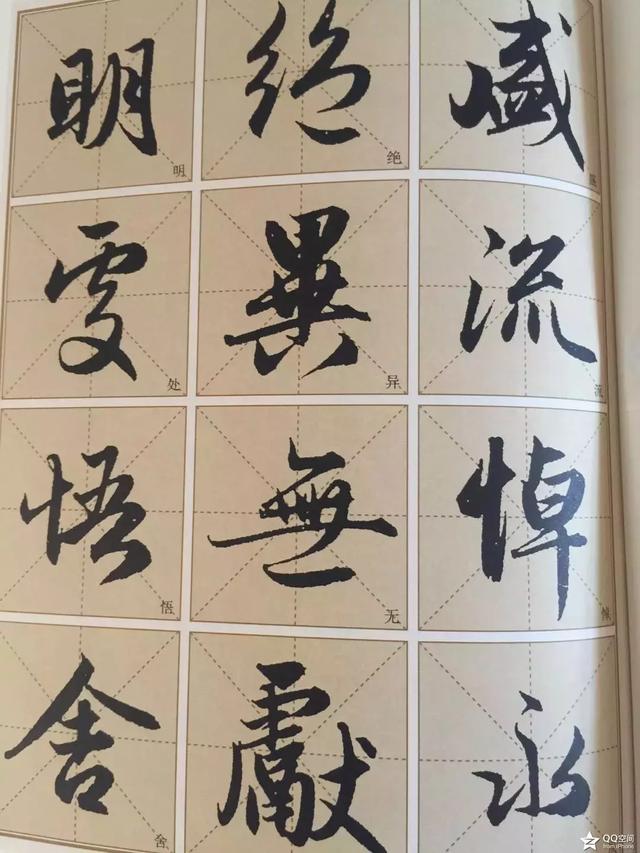 明 絕 盛
明 绝 盛
處 異 流
处 异 流
悟 無 悼
悟 无 悼
舍 獻 永
舍
QQ空间
from iPhone